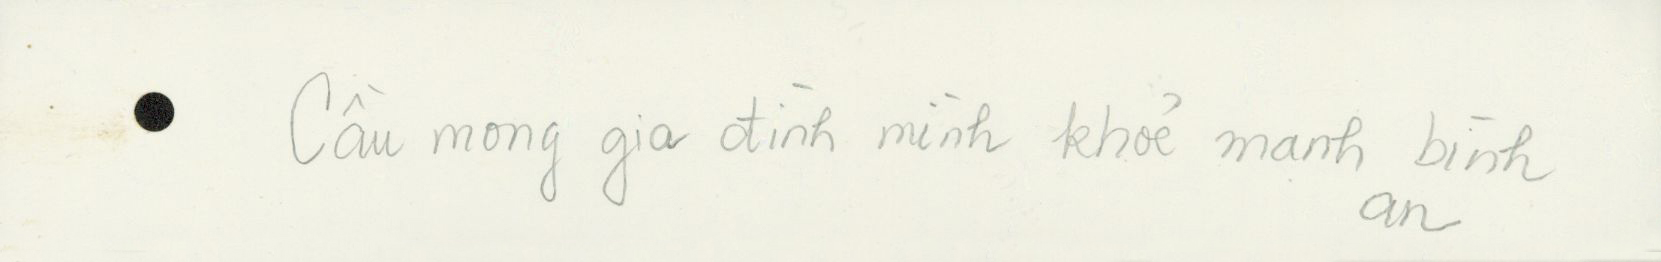 Cầu mong gia đình mình khoẻ mạnh bình
an